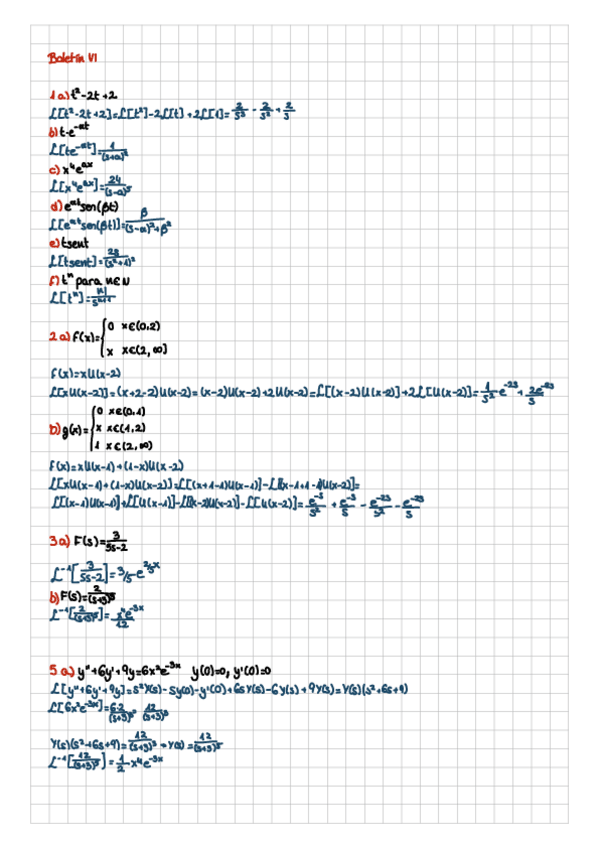 Boletín VI
1 a) t²-2t+2
ℒ[t²-2t+2]=ℒ[t²]-2ℒ[t]+2ℒ[1]= 2/s³ - 2/s² + 2/s
b) t·e^-αt
ℒ[te^-αt]= 1/(s+α)²
c) x⁴e^ax
ℒ[x⁴e^ax]= 24/(s-a)⁵
d) e^αt sen(βt)
ℒ[e^αt sen(βt)]= β/((s-α)²+β²)
e) tsent
ℒ[tsent]= 2s/(s²+1)²
f) tⁿ para n∈N
ℒ[tⁿ]= n!/s^n+1
2 a) f(x)={0 x∈(0,2)
x x∈(2,∞]
f(x)=xU(x-2)
ℒ[xU(x-2)]=(x+2-2)U(x-2)=(x-2)U(x-2)+2U(x-2)=ℒ[(x-2)U(x-2)]+2ℒ[U(x-2)]= 1/s² e^-2s + 2e^-2s/s
b) g(x)={0 x∈(0,1)
x x∈(1,2)
1 x∈(2,∞)
f(x)=xU(x-1)+(1-x)U(x-2)
ℒ[xU(x-1)+(1-x)U(x-2)]=ℒ[(x+1-1)U(x-1)]-ℒ[(x-1+1-1)U(x-2)]=
ℒ[(x-1)U(x-1)]+ℒ[U(x-1)]-ℒ[(x-2)U(x-2)]-ℒ[U(x-2)]= e^-s/s² + e^-s/s - e^-2s/s² - e^-2s/s
3 a) F(s)= 3/(5s-2)
ℒ⁻¹[3/(5s-2)]= 3/5 e^2/5x
b) F(s)= 2/(s+3)⁵
ℒ⁻¹[2/(s+3)⁵]= x⁴e^-3x/12
5 a) y''+6y'+9y=6x²e^-3x y(0)=0, y'(0)=0
ℒ[y''+6y'+9y]=s²Y(s)-sy(0)-y'(0)+6sY(s)-6y(s)+9Y(s)=Y(s)(s²+6s+9)
ℒ[6x²e^-3x]= 6·2/(s+3)³ = 12/(s+3)³
Y(s)(s²+6s+9)= 12/(s+3)³ → Y(s)= 12/(s+3)⁵
ℒ⁻¹[12/(s+3)⁵]= 1/2 x⁴e^-3x